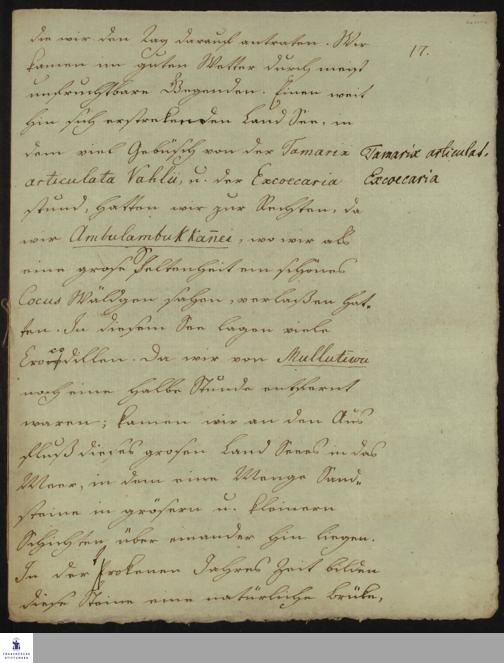 17.
die wir den Tag darauf antraten. Wir
kamen im guten Wetter durch meist
unfruchtbare Gegenden. Einen weit
hin sich erstrekenden Land See, in
dem viel Gebüsch von der Tamarix
Tamarix articulat.
articulata Vahlii, u. der Excoecaria
Excoecaria
stund, hatten wir zur Rechten, da
wir Ambulambukkañei, wo wir als
eine grose Seltenheit ein schönes
Cocus Wäldgen sahen, verlaßen hat-
ten. In diesem See lagen viele
Crocodillen. Da wir von Mullutiwu
noch eine halbe Stunde entfernt
waren; kamen wir an den Aus
fluß dieses grosen Land Sees in das
Meer, in dem eine Menge Sand-
steine in grösern u. kleinern
Schichten über einander hin liegen.
In der trokenen Jahres Zeit bilden
diese Steine eine natürliche Brüke,
FRANCKESCHE
STIFTUNGEN